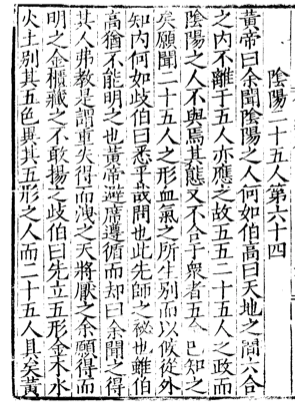 陰陽二十五人第六十四
黃帝曰余聞陰陽之人何如伯高曰天地之間六合
之內不離于五人亦應之故五五二十五人之政而
陰陽之人不與焉其態又不合于衆者五余已知之
矣願聞二十五人之形血氣之所生別而以候從外
知內何如歧伯曰悉乎哉問也此先師之祕也雖伯
高猶不能明之也黃帝避席遵循而却曰余聞之得
其人弗教是謂重失得而洩之天將厭之余願得而
明之金櫃藏之不敢揚之歧伯曰先立五形金木水
火土別其五色異其五形之人而二十五人具矣黃